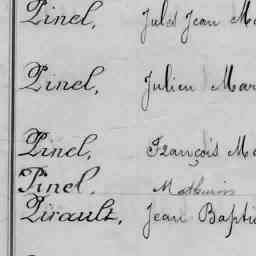 Pinel, Jules Jean Ma
Pinel, Julien Mar
Pinel, François Ma
Pinel. Mathurin
Pirault, Jean Bapti